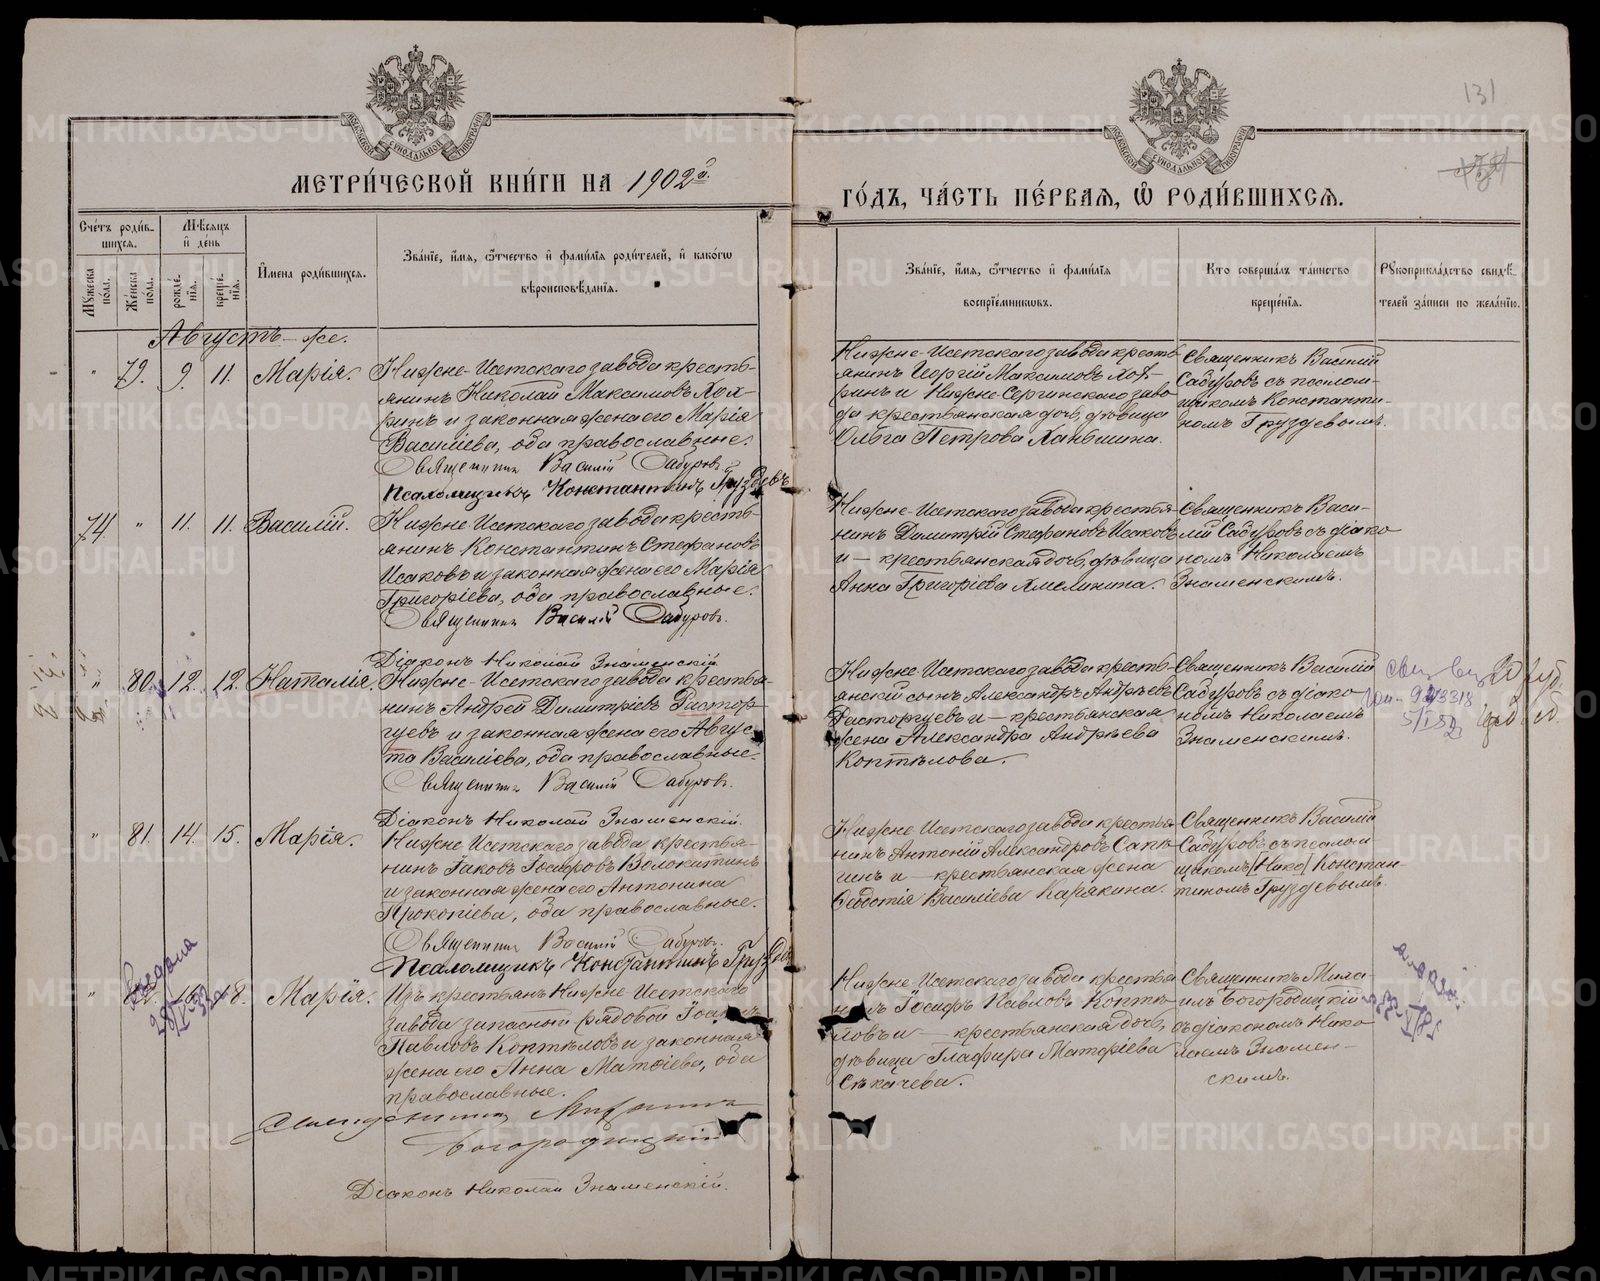 131
МЕТРИ́ЧЕСКОЙ КНИ́ГИ НА 1902й.
ГО́ДЪ, ЧА́СТЬ ПЕ́РВАЯ, Ѿ РОДИ́ВШИХСЯ.
Сче́тъ роди́в-
шихся.
Му́жеска по́ла.
Же́нска по́ла.
Мѣ́сяцъ
и҆ де́нь
рожде́нїя.
креще́нїя.
И҆мена роди́вшихся.
Зва́нїе, и҆́мя, ѻ҆́тчество и҆ фами́лїя роди́телей, и҆ како́гѡ
вѣроисповѣ́данїя.
Зва́нїе, и҆́мя, ѻ҆́тчество и҆ фами́лїя
воспрїе́мниковъ.
Кто̀ соверша́лъ та́инство
креще́нїя.
Рꙋкоприкла́дство свидѣ́-
телей за́писи по жела́нїю.
Августъ-же.
" 79. 9. 11. Марія.
Нижне-Исетскаго завода кресть-
янинъ Николай Максимовъ
и законная жена его Марія
Васильева, оба православные.
Священникъ Василій Сабуровъ
Псаломщикъ Константинъ Груздевъ
Нижне-Исетскаго завода кресть-
янинъ Георгій Максимовъ
и Нижне-Сергинскаго заво-
да крестьянская дочь, дѣвица
Ольга Петрова
Священникъ Василій
Сабуровъ съ псалом-
щикомъ Константи-
номъ Груздевымъ.
74 " 11. 11. Василій.
Нижне-Исетскаго завода кресть-
янинъ Константинъ Стефановъ
Исаковъ и законная жена его Марія
Григоріева, оба православные.
Священникъ Василій Сабуровъ.
Діаконъ Николай Знаменскій
Нижне-Исетскаго завода крестья-
нинъ Димитрій Стефановъ Исаковъ
и — крестьянская дочь, дѣвица
Анна Григоріева Хмелинина.
Священникъ Васи-
лій Сабуровъ съ діако-
номъ Николаемъ
Знаменскимъ.
" 80. 12. 12. Наталія.
Нижне-Исетскаго завода крестья-
нинъ Андрей Димитріевъ Растор-
гуевъ и законная жена его Авгус-
та Васильева, оба православные.
Священникъ Василій Сабуровъ.
Діаконъ Николай Знаменскій.
Нижне-Исетскаго завода кресть-
янскій сынъ Александръ Андреевъ
Расторгуевъ и — крестьянская
жена Александра Андреева
Коптѣлова.
Священникъ Василій
Сабуровъ съ діако-
номъ Николаемъ
Знаменскимъ.
" 81. 14. 15. Марія.
Нижне-Исетскаго завода крестья-
нинъ Іаковъ Іосифовъ Волокитинъ
и законная жена его Антонина
Прокопіева, оба православные.
Священникъ Василій Сабуровъ.
Псаломщикъ Константинъ Груздевъ
Нижне-Исетскаго завода крестья-
нинъ Антоній Александровъ Сапѣ-
гинъ и — крестьянская жена
Феоктія Васильева Карякина.
Священникъ Василій
Сабуровъ съ псалом-
щикомъ [Нико] Констан-
тиномъ Груздевымъ.
" 82. 18. Марія.
Изъ крестьянъ Нижне-Исетскаго
завода запасный рядовой
Павловъ Коптѣловъ и законная
жена его Анна Матѳіева, оба
православные.
Священникъ
Богородицкій
Діаконъ Николай Знаменскій.
Нижне-Исетскаго завода крестья-
нинъ Іосифъ Павловъ Коптѣ-
ловъ и — крестьянская дочь,
дѣвица Глафира Матѳіева
Секачева.
Священникъ Миха-
илъ Богородицкій
съ діакономъ Нико-
лаемъ Знамен-
скимъ.